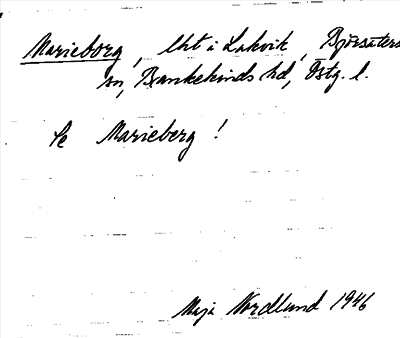 Marieborg, lht i Lakvik, Björsäters
sn, Bankekinds hd, Östg. l.
Se Marieberg!
Maja Nordlund 1946